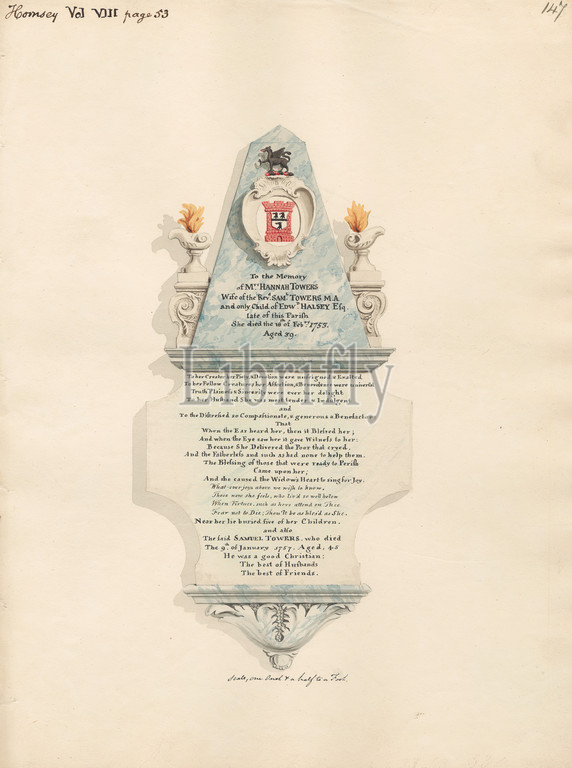 Hornsey Vol VIII page 53
147
To the Memory
of Mrs HANNAH TOWERS
Wife of the Revd. SAMl. TOWERS M.A.
and only Child of EDWd. HALSEY Esq.
late of this Parish
She died the 18th of Febry. 1753.
Aged 39.
To her Creator her Piety & Devotion were unfeigned & Exalted
To her Fellow Creatures her Affection, & Benevolence were universal
Truth Plainness & Sincerity were ever her delight
To her Husband She was most tender & Indulgent
and
To the Distressed so Compassionate, & generous a Benefactior
That
When the Ear heard her, then it Blessed her;
And when the Eye saw her it gave Witness to her:
Because She Delivered the Poor that cryed,
And the Fatherless and such as had none to help them.
The Blessing of those that were ready to Perish
Came upon her;
And she caused the Widow's Heart to sing for Joy.
What ever joys above we wish to know;
Those now she feels, who liv'd so well below
When Virtues, such as hers attend on Thee
Fear not to Die; Thou'lt be as bless'd as She.
Near her lie buried five of her Children.
and also
The said SAMUEL TOWERS, who died
The 9th. of January 1757. Aged, 48
He was a good Christian:
The best of Husbands
The best of Friends.
Scale, one Inch & a half to a Foot
Librifly